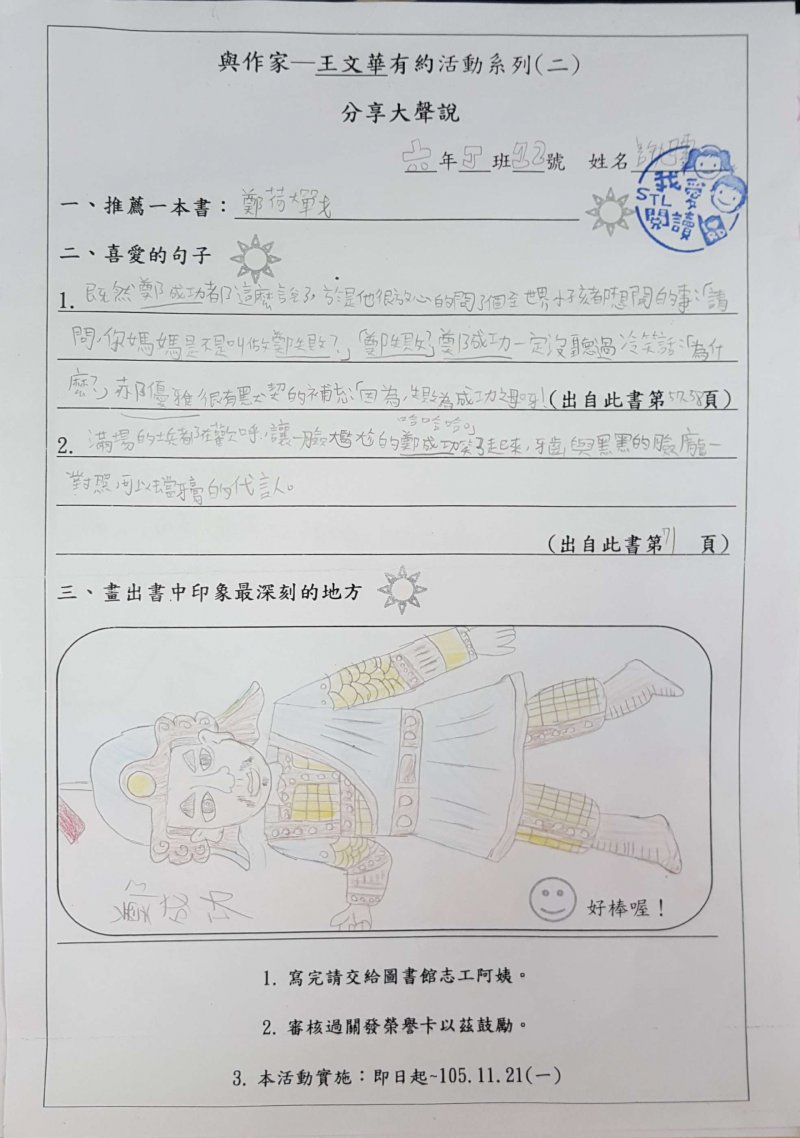 與作家—王文華有約活動系列(二)
分享大聲說
六年丁班12號 姓名
我愛
STL
閱讀
一、推薦一本書：鄭荷大戰
二、喜愛的句子
1. 既然鄭成功都這麼說了，於是他很放心的問了個全世界小孩都想問的事:「請
問，你媽媽是不是叫做鄭失敗？」「鄭失敗？鄭成功一定沒聽過冷笑話:「為什
麼?」郝優雅很有默契的補充:「因為，失敗為成功之母呀! (出自此書第57.58頁)
哈哈哈哈
2. 滿場的士兵都在歡呼，讓一臉尷尬的鄭成功笑了起來，牙齒與黑黑的臉龐一
對照，可以去當牙膏的代言人。
(出自此書第71頁)
三、畫出書中印象最深刻的地方
好棒喔！
1. 寫完請交給圖書館志工阿姨。
2. 審核過關發榮譽卡以茲鼓勵。
3. 本活動實施：即日起~105.11.21(一)